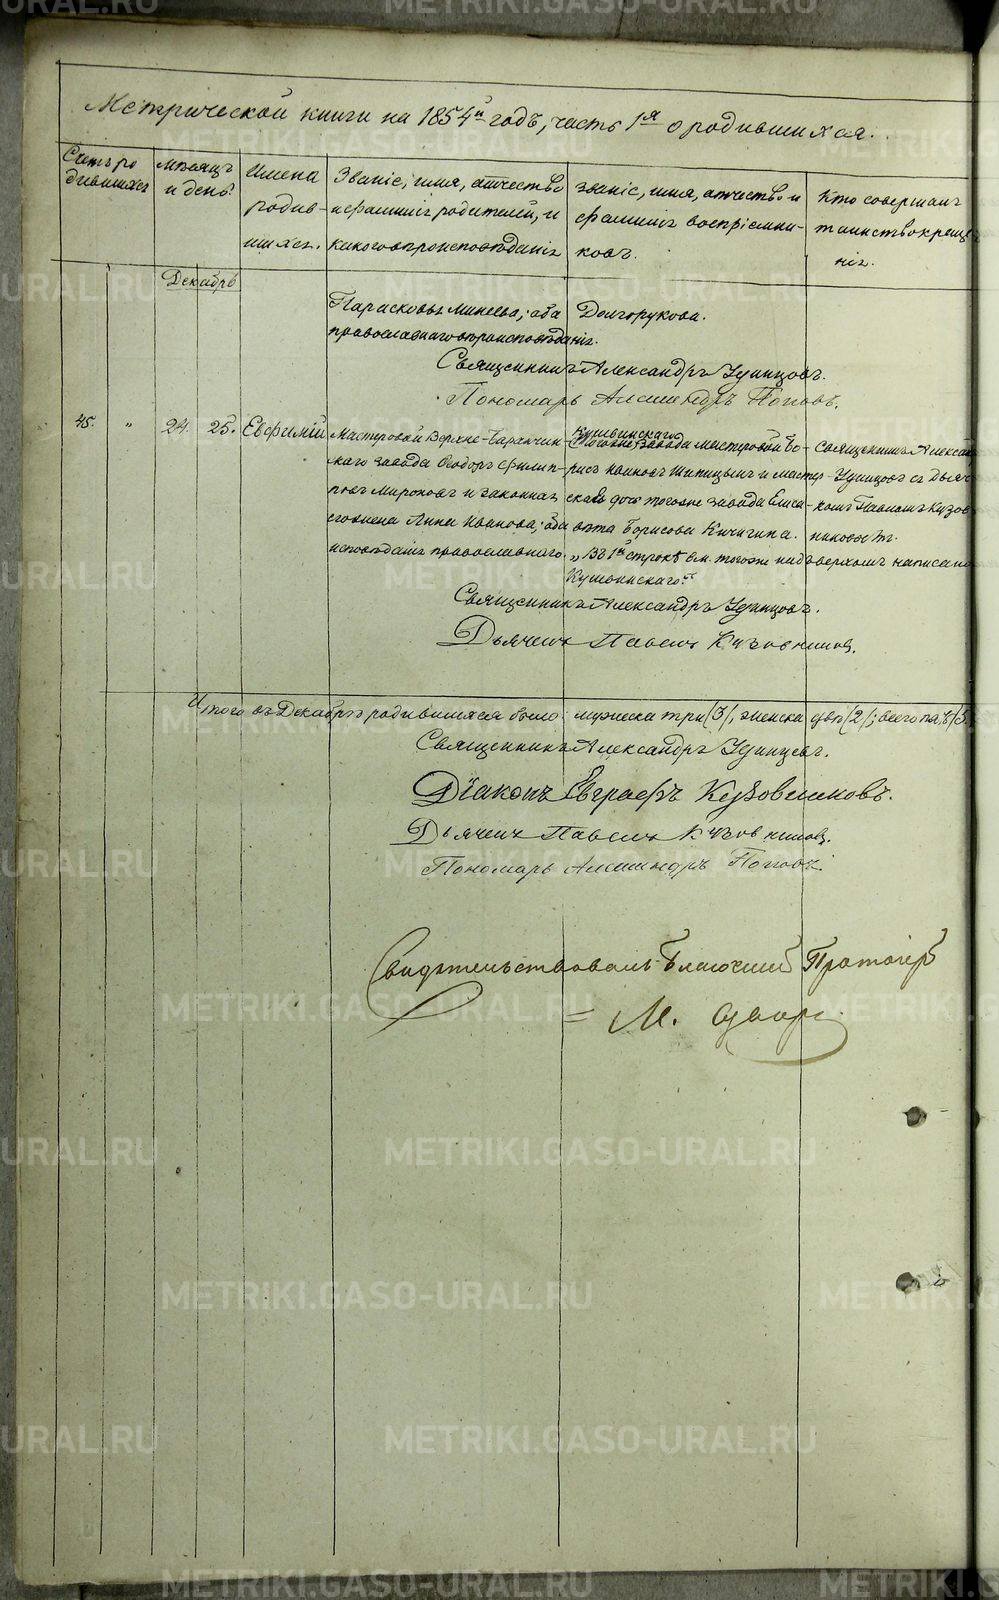 Метрической книги на 1854й годъ, часть 1я о родившихся.
Счетъ ро
дившихся
мѣсяцъ
и день.
Имена
родив-
шихся.
Званіе, имя, отчество
и фамилія родителей, и
какого вѣроисповѣданія
Званіе, имя, отчество и
фамилія воспріемни-
ковъ.
Кто совершалъ
таинство креще
нія.
Декабрь
Парасковья Минеева; оба
православнаго вѣроисповѣданія.
Долгорукова.
Священникъ Александръ Удинцовъ.
Пономарь Александръ Поповъ.
45.
"
24.
25.
Евфимій
Мастеровой Верхне-Баранчин-
скаго завода Ѳеодоръ Филип-
повъ Мироновъ и законная
его жена Анна Иванова; оба
исповѣданія православнаго.
Кушвинскаго
Тогоже завода мастеровой Бо-
рисъ Ивановъ Шипицынъ и мастер-
ская дочь тогоже завода Елиса-
вета Борисова Кичигина.
„Въ 1й строкѣ вм. тогоже надъ верхомъ написано
Кушвинскаго"
Священникъ Алексан
Удинцовъ съ Дьяч
комъ Павломъ Кузов
никовымъ.
Священникъ Александръ Удинцовъ.
Дьячекъ Павелъ Кузовниковъ.
Итого въ Декабрѣ родившихся было: мужеска три (3), женска двѣ (2); всего пять (5
Священникъ Александръ Удинцовъ.
Діаконъ Евграфъ Кузовниковъ.
Дьячекъ Павелъ Кузовниковъ.
Пономарь Александръ Поповъ.
Свидѣтельствовалъ Благочинный Протоіерей
М.
METRIKI.GASO-URAL.RU